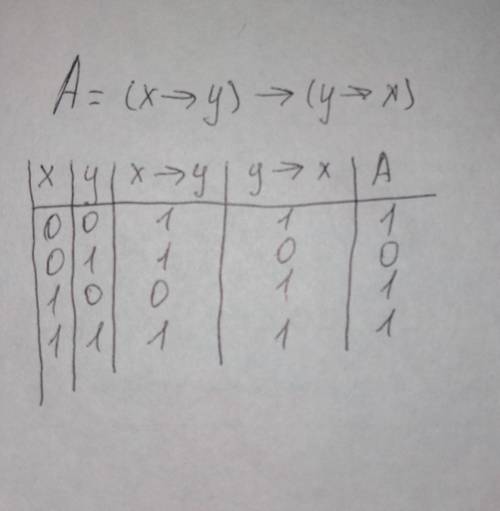 A = (x → y) → (y → x)
x y x → y y → x A
0 0 1 1 1
0 1 1 0 0
1 0 0 1 1
1 1 1 1 1